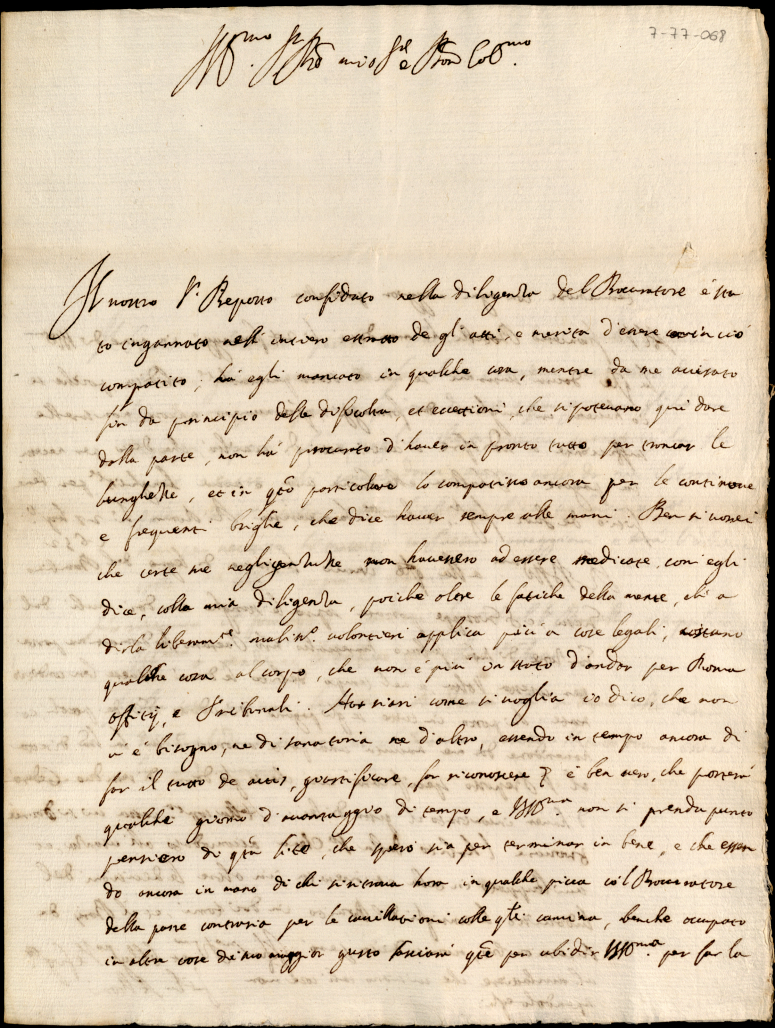 7-77-068
Ill.mo Sr. Pron mio Sre e Pron Col.mo
Il nostro Sr. Reposto confidato nella diligenza del Procuratore è sta
to ingannato nell' intiero estratto degli atti, e merita d'essere
compatito; hà egli mancato in qualche cosa, mentre da me avvisato
sin da principio delle difficoltà, et eccettioni, che si potevano quì dare
dalla parte, non hà procurato d'haver in pronto tutto per troncar le
lunghezze, et in qto particolare lo compatisco ancora per le continue
e frequenti brighe, che dice haver sempre alle mani. Ben si vorrei
che certe me negligentuzze non havessero ad essere medicate, com' egli
dice, colla mia diligenza, poiche oltre le fatiche della mente, ch' a
dirla liberam.te mal vol.ri volontieri applica più a cose legali, costano
qualche cosa al corpo, che non è più in stato d'andar per Roma
offitij, e Tribunali. Mà siasi come si voglia io dico, che non
vi è bisogno, ne di sanatoria ne d'altro, essendo in tempo ancora di
far il tutto de actis, giustificare, far riconoscere è ben vero, che porterà
qualche giorno d'avantaggio di tempo, e VS Ill.ma non si prenda punto
pensiero di qta lite, che spero sia per terminar in bene, e che essen
do ancora in mano di chi si ritrova hora in qualche picca col Procuratore
della parte contraria per le cavillationi colle qli camina, benche occupato
in altre cose di mio maggior gusto lasciarò qte per ubidir VS Ill.ma per far la